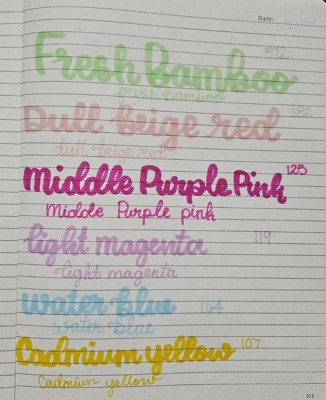 Date:
Fresh Bamboo
fresh bamboo
Dull beige red
dull beige red
Middle Purple Pink 125
Middle Purple pink
light magenta 119
light magenta
Water blue 164
water blue
Cadmium yellow 107
Cadmium yellow